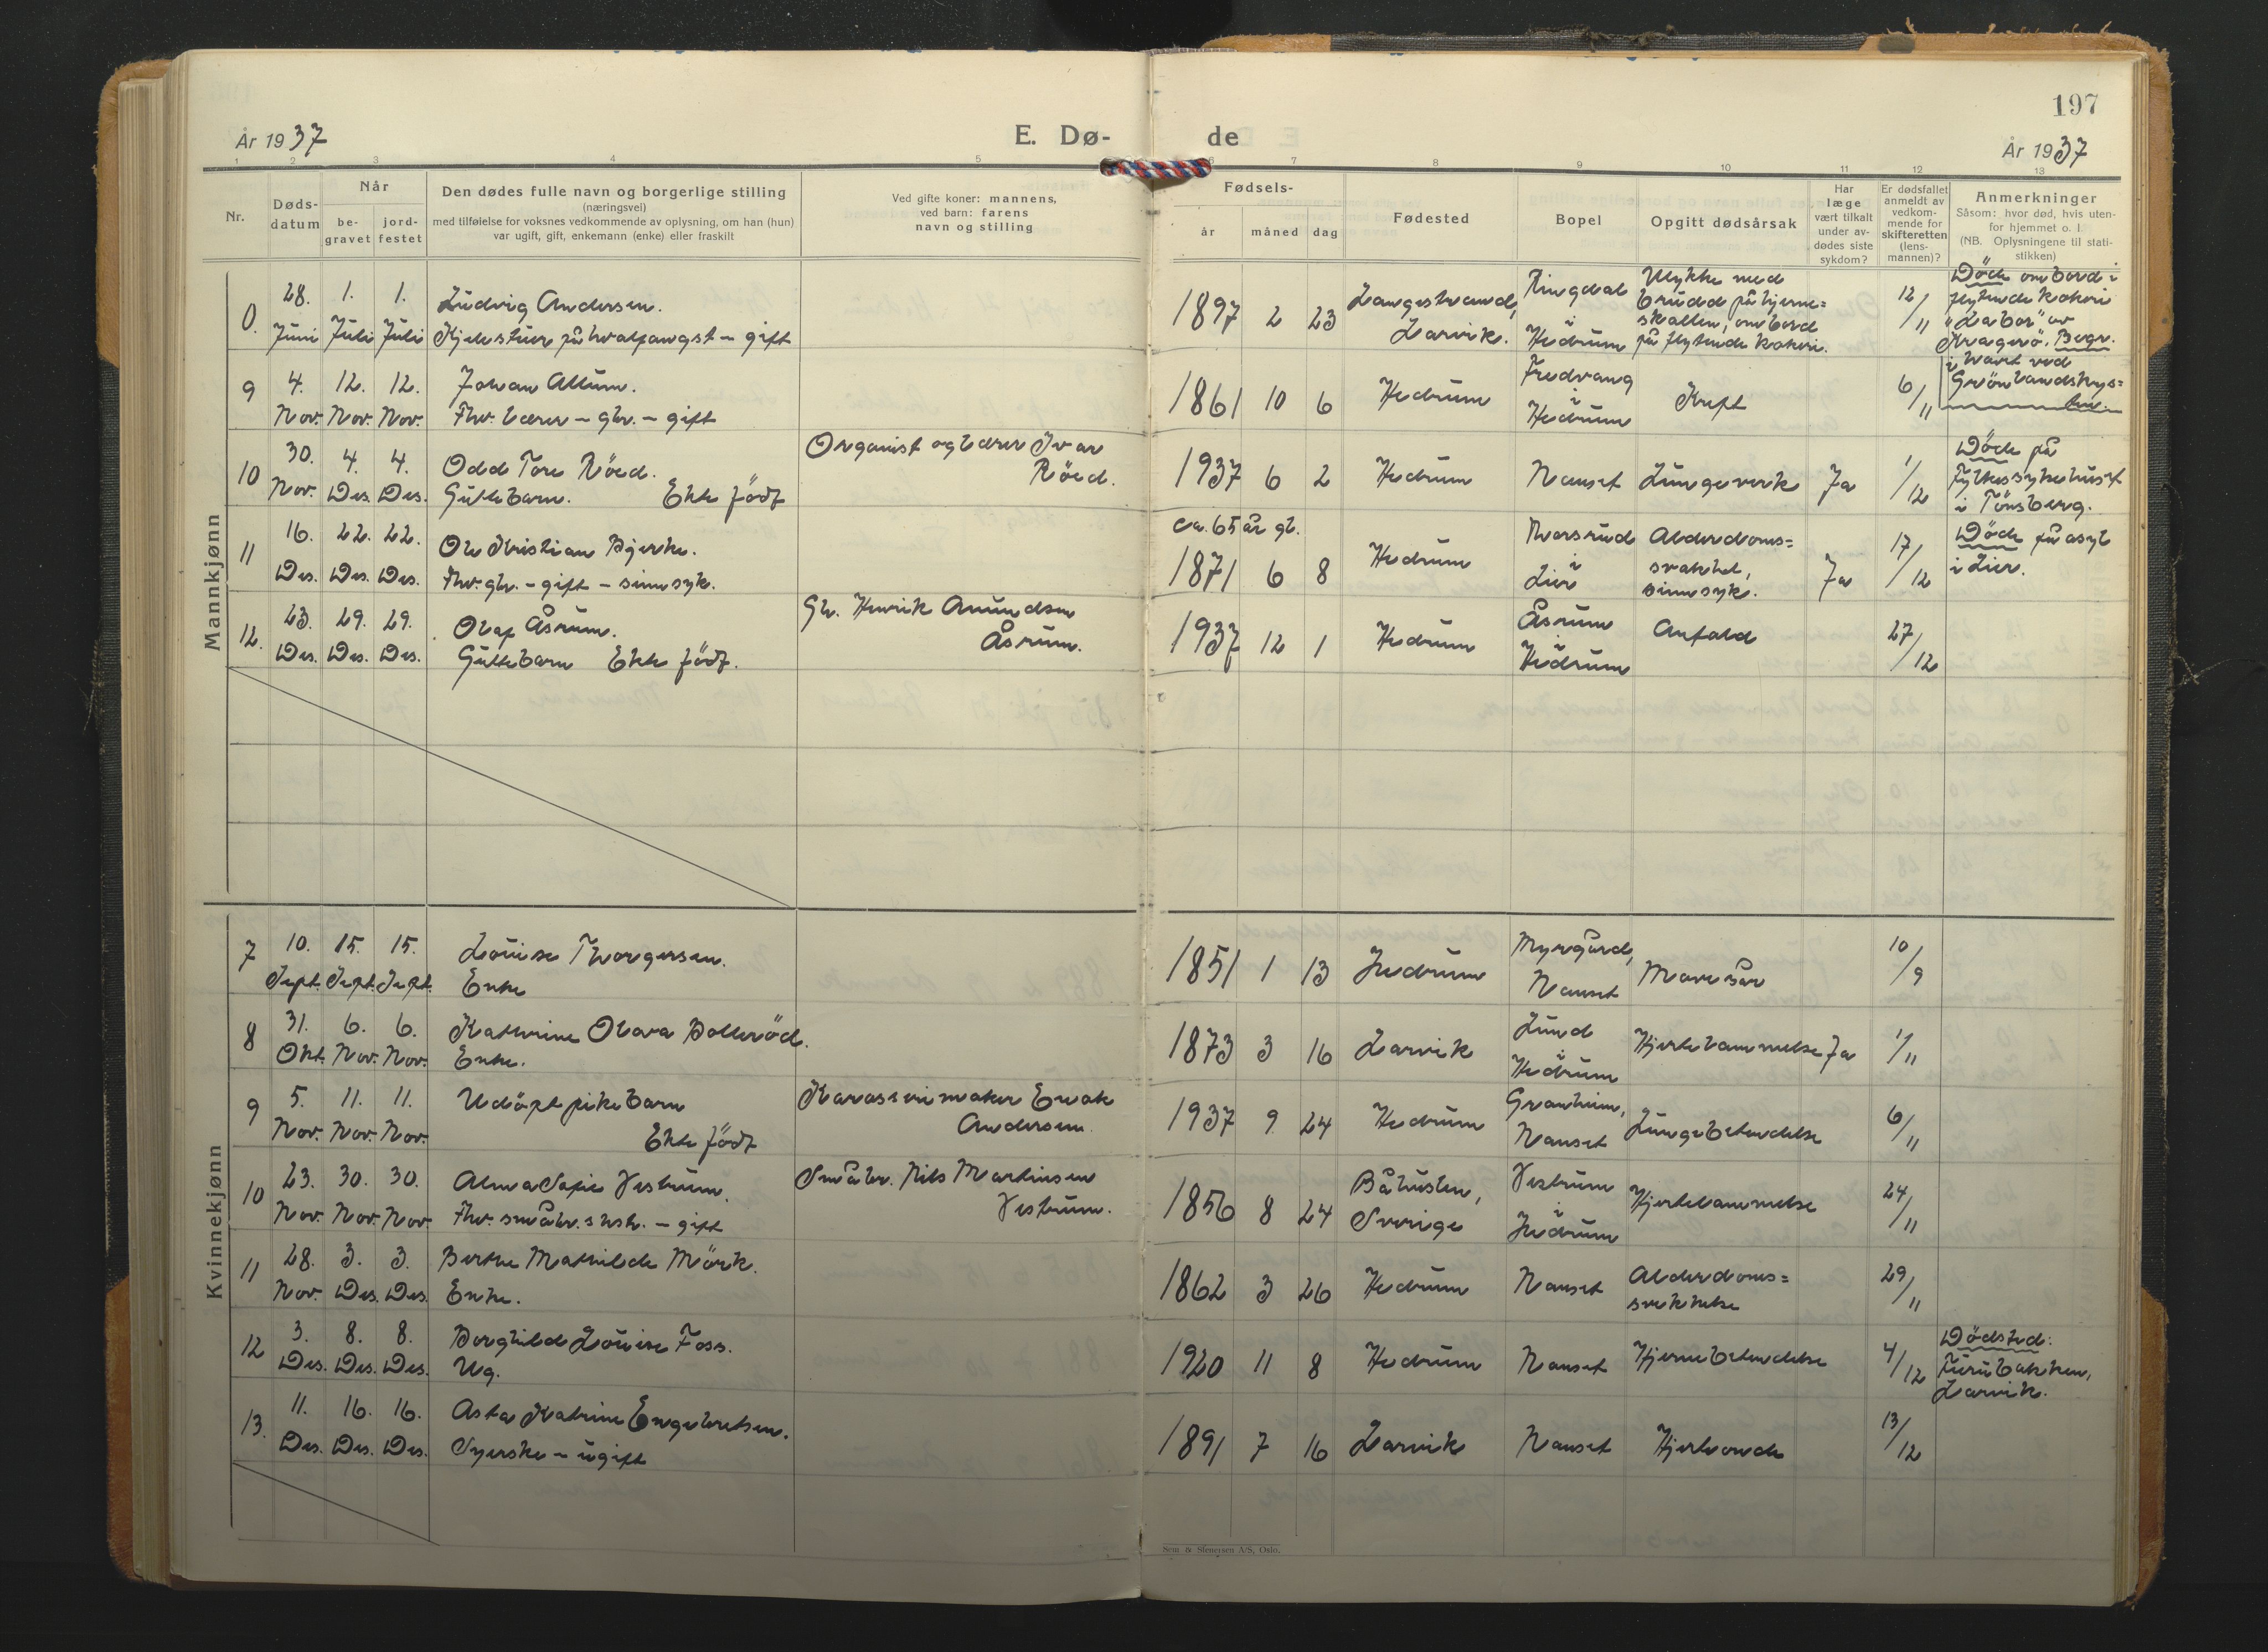 197
År 1937
E. Dø-
de
År 1937
1 2 3 4 5 6 7 8 9 10 11 12 13
Nr.
Døds-
datum
Når
be-
gravet
jord-
festet
Den dødes fulle navn og borgerlige stilling
(næringsvei)
med tilføielse for voksnes vedkommende av oplysning, om han (hun)
var ugift, gift, enkemann (enke) eller fraskilt
Ved gifte koner: mannens,
ved barn: farens
navn og stilling
Fødsels-
år måned dag
Fødested
Bopel
Opgitt dødsårsak
Har
læge
vært tilkalt
under av-
dødes siste
sykdom?
Er dødsfallet
anmeldt av
vedkom-
mende for
skifteretten
(lens-
mannen)?
Anmerkninger
Såsom: hvor død, hvis uten-
for hjemmet o. l.
(NB. Oplysningene til stati-
stikken)
Mannkjønn
0. 28. Juni 1. Juli 1. Juli
Ludvig Andersen.
Hjelestuer på hvalfangst - gift
1897 2 23
Langestrand,
Larvik.
Ringdal
i
Hedrum
Ulykke med
brudd på hjerne=
skallen, ombord
på flytende kokeri.
12/11
Död ombord i
flytende kokeri
"Labor" av
Kragerö. Begr.
i havet ved
Grönlandskys=
ten.
9 4. Nov. 12. Nov. 12. Nov.
Johan Allum.
Fhv. lærer - gbr. - gift
1861 10 6
Hedrum
Fredvang
i
Hedrum
Kreft
6/11
10 30. Nov. 4. Des. 4. Des.
Odd Tore Röed.
Guttebarn. Ekte född
Organist og lærer Ivar
Röed.
1937 6 2
Hedrum
Nanset
Lungeverk
Ja
1/12
Död på
Fylkessykehuset
i Tönsberg.
11 16. Des. 22. Des. 22. Des.
Ole Kristian Bjerke.
Fhv. gbr. - gift - sinnsyk.
ca. 65 år gl.
1871 6 8
Hedrum
Thorsrud
i
Lier
Alderdoms=
svakhet,
sinnsyk.
Ja
17/12
Död på asyl
i Lier.
12. 23. Des. 29. Des. 29. Des.
Olaf Åsrum.
Guttebarn Ekte född.
Gbr. Henrik Amundsen
Åsrum.
1937 12 1
Hedrum
Åsrum
i
Hedrum
Anfald
27/12
Kvinnekjønn
7 10. Sept. 15. Sept. 15. Sept.
Lovise Thorgersen.
Enke
1851 1 13
Hedrum
Myrgård,
Nanset
Mavesår
10/9
8 31. Okt. 6. Nov. 6. Nov.
Kathrine Olava Bolleröd.
Enke.
1873 3 16
Larvik
Lund
i
Hedrum
Hjertelammelse
Ja
1/11
9 5. Nov. 11. Nov. 11. Nov.
Udöpt pikebarn
Ekte född
Karosserimaker Ewak
Andersen.
1937 9 24
Hedrum
Granheim,
Nanset
Lungebetendelse
6/11
10 23. Nov. 30. Nov. 30. Nov.
Alma Sofie Vestrum.
Fhv. småbr.s hstr. - gift
Småbr. Nils Martinsen
Vestrum.
1856 8 24
Båhuslen,
Sverige
Vestrum
i
Hedrum
Hjertelammelse
24/11
11 28. Nov. 3. Des. 3. Des.
Berthe Mathilde Mörk.
Enke.
1862 3 26
Hedrum
Nanset
Alderdoms=
svekkelse
29/11
12 3. Des. 8. Des. 8. Des.
Borghild Lovise Foss.
Ug.
1920 11 8
Hedrum
Nanset
Hjernebetendelse
4/12
Dödsted:
Furubakken,
Larvik.
13. 11. Des. 16. Des. 16. Des.
Asta Katrine Engebretsen.
Syerske - ugift
1891 7 16
Larvik
Nanset
Hjerteonde
13/12
Sem & Stenersen A/S, Oslo.